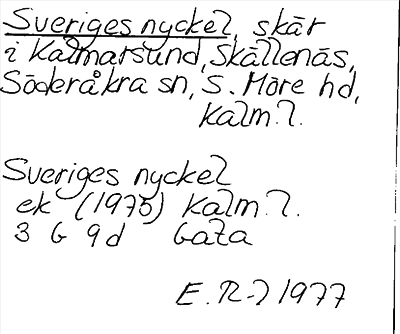 Sveriges nyckel, skär
i Kalmarsund, Skällenäs,
Söderåkra sn, S. Möre hd,
Kalm. l.
Sveriges nyckel
ek (1975) Kalm. l.
3 G 9d Gata
E. R-7 1977